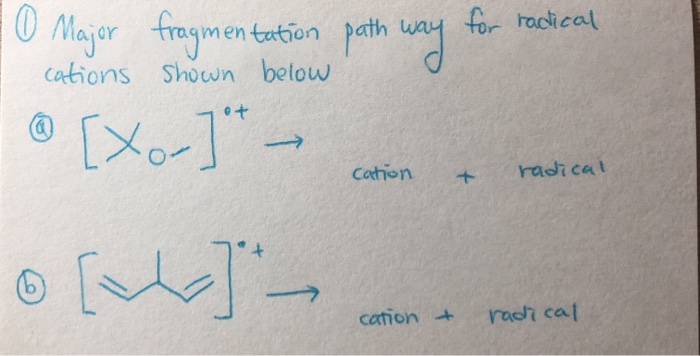 ① Major fragmentation path way for radical
cations shown below
ⓐ [ O ]•+ →
cation + radical
ⓑ [ ]•+ →
cation + radical